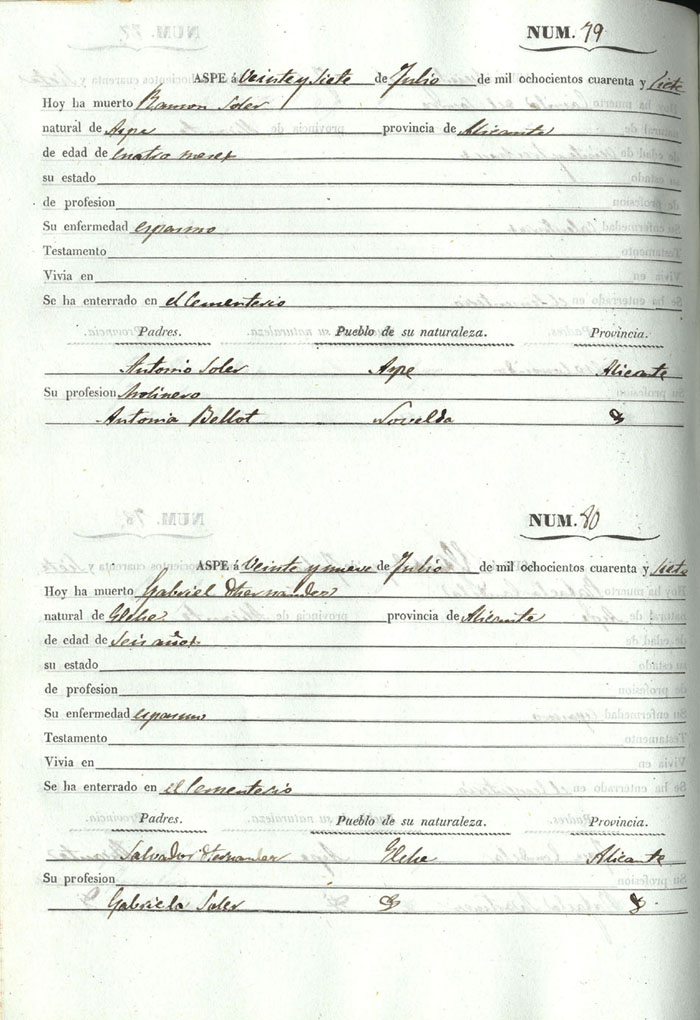 NUM. 79
ASPE á Veinte y Siete de Julio de mil ochocientos cuarenta y Siete
Hoy ha muerto Ramon Soler
natural de Aspe provincia de Alicante
de edad de cuatro meses
su estado
de profesion
Su enfermedad espasmo
Testamento
Vivia en
Se ha enterrado en el Cementerio
Padres. Pueblo de su naturaleza. Provincia.
Antonio Soler Aspe Alicante
Su profesion Molinero
Antonia Bellot Novelda
NUM. 80
ASPE á Veinte y nueve de Julio de mil ochocientos cuarenta y Siete
Hoy ha muerto Gabriel Hernandez
natural de Elche provincia de Alicante
de edad de Seis años
su estado
de profesion
Su enfermedad espasmo
Testamento
Vivia en
Se ha enterrado en el Cementerio
Padres. Pueblo de su naturaleza. Provincia.
Salvador Hernandez Elche Alicante
Su profesion
Gabriela Soler